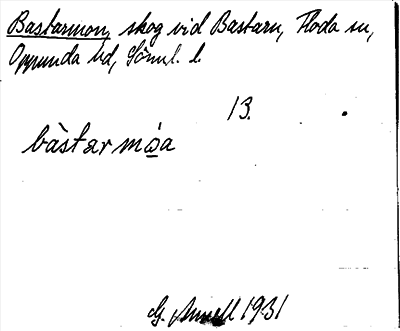 Bastarmon, skog vid Bastarn, Floda sn,
Oppunda hd, Söml. l.
13.
bàstarmṓa
G. Annell 1931